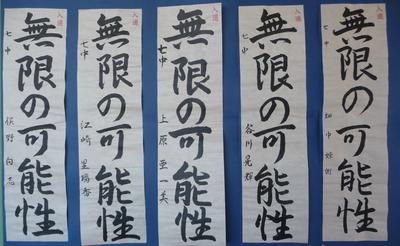 入選
無限の可能性
七中
谷川晃輝
入選
無限の可能性
七中
上原亜一美
入選
無限の可能性
七中
江崎星瑠香
入選
無限の可能性
七中
入選
無限の可能性
七中